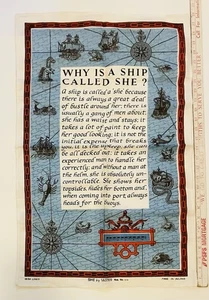 WHY IS A SHIP
CALLED SHE?
A ship is called a 'she' because
there is always a great deal
of bustle around her; there is
usually a gang of men about;
she has a waist and stays; it
takes a lot of paint to keep
her good looking; it is not the
initial expense that breaks
you, it is the upkeep; she can
be all decked out; it takes an
experienced man to handle her
correctly; and without a man at
the helm, she is absolutely un-
controllable. She shows her
topsides, hides her bottom and,
when coming into port always
heads for the buoys.